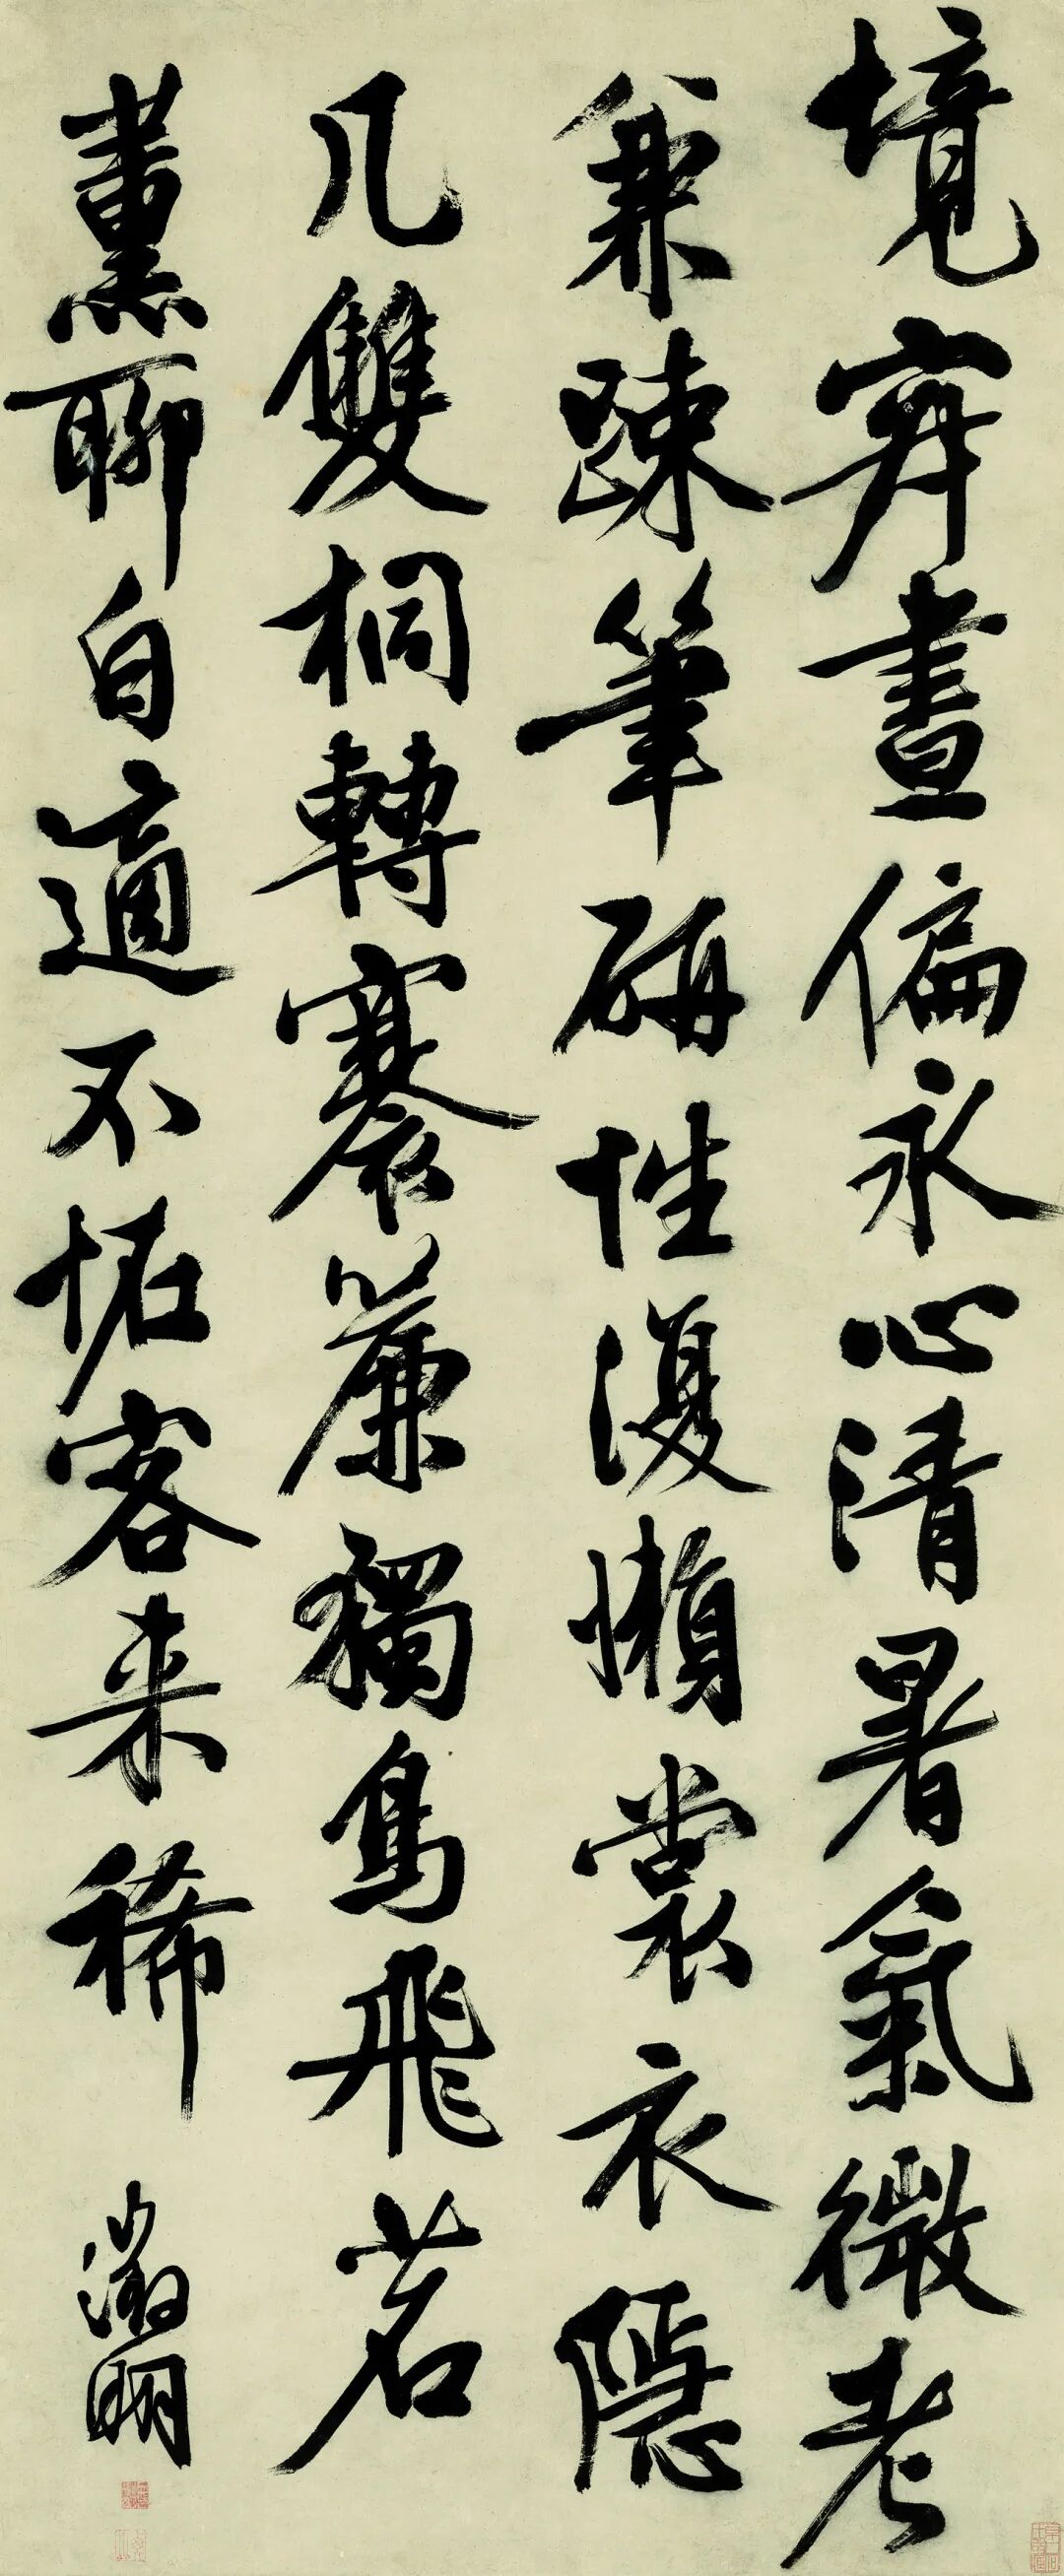 境寂晝偏永心清暑氣微老
兼踈筆研性復懶裳衣隱
几雙桐轉褰簾獨鳥飛茗
薰聊自適不恠客来稀
徵明